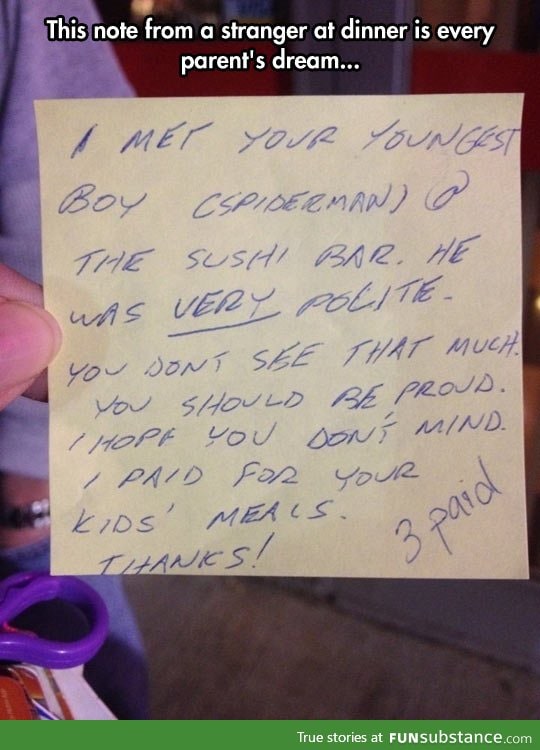 This note from a stranger at dinner is every
parent's dream...
I MET YOUR YOUNGEST
BOY (SPIDERMAN) @
THE SUSHI BAR. HE
WAS VERY POLITE.
YOU DONT SEE THAT MUCH.
YOU SHOULD BE PROUD.
I HOPE YOU DON'T MIND.
I PAID FOR YOUR
KIDS' MEALS.
THANKS!
3 paid
True stories at FUNsubstance.com